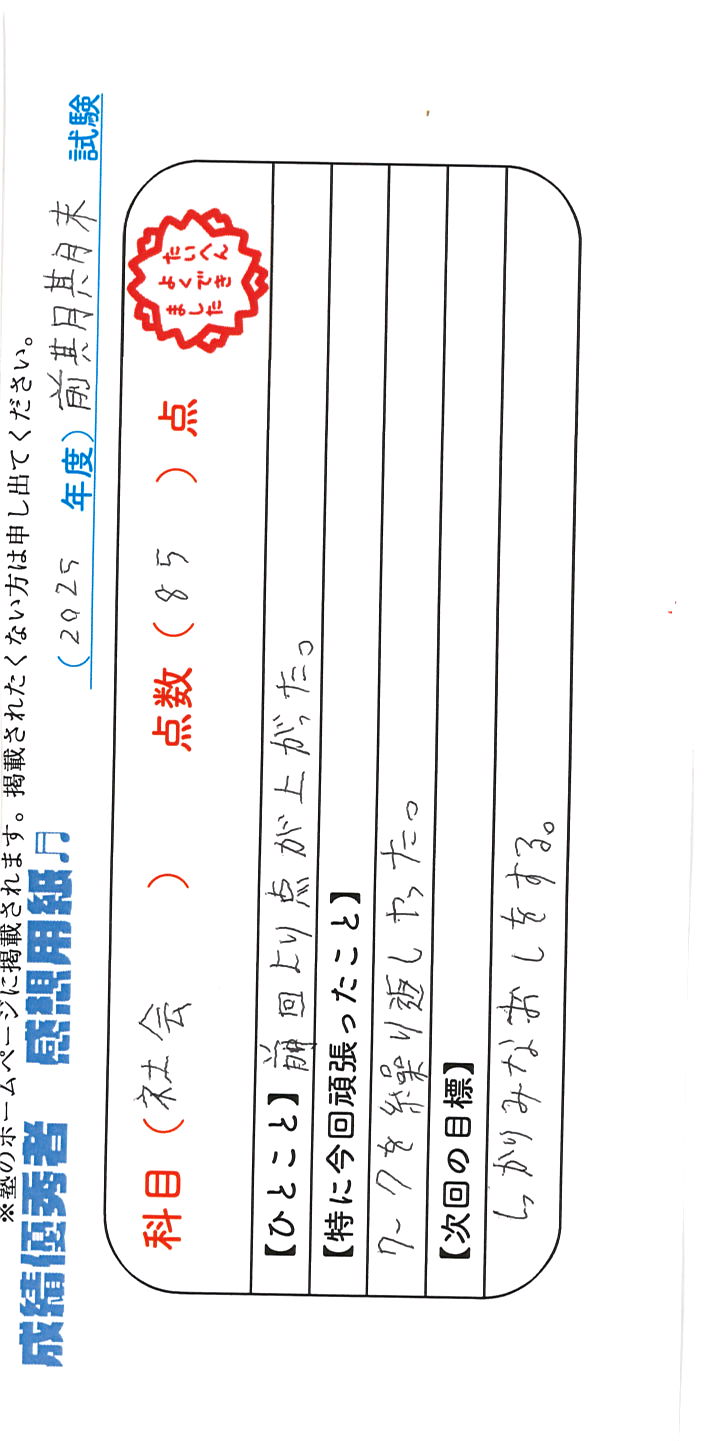 ※塾のホームページに掲載されます。掲載されたくない方は申し出てください。
成績優秀者 感想用紙♫
(2025 年度)前期期末 試験
科目(社会 ) 点数(85 )点
たいへん
よくでき
ました
【ひとこと】前回より点が上がった。
【特に今回頑張ったこと】
ワークを繰り返しやった。
【次回の目標】
しっかりみなおしをする。